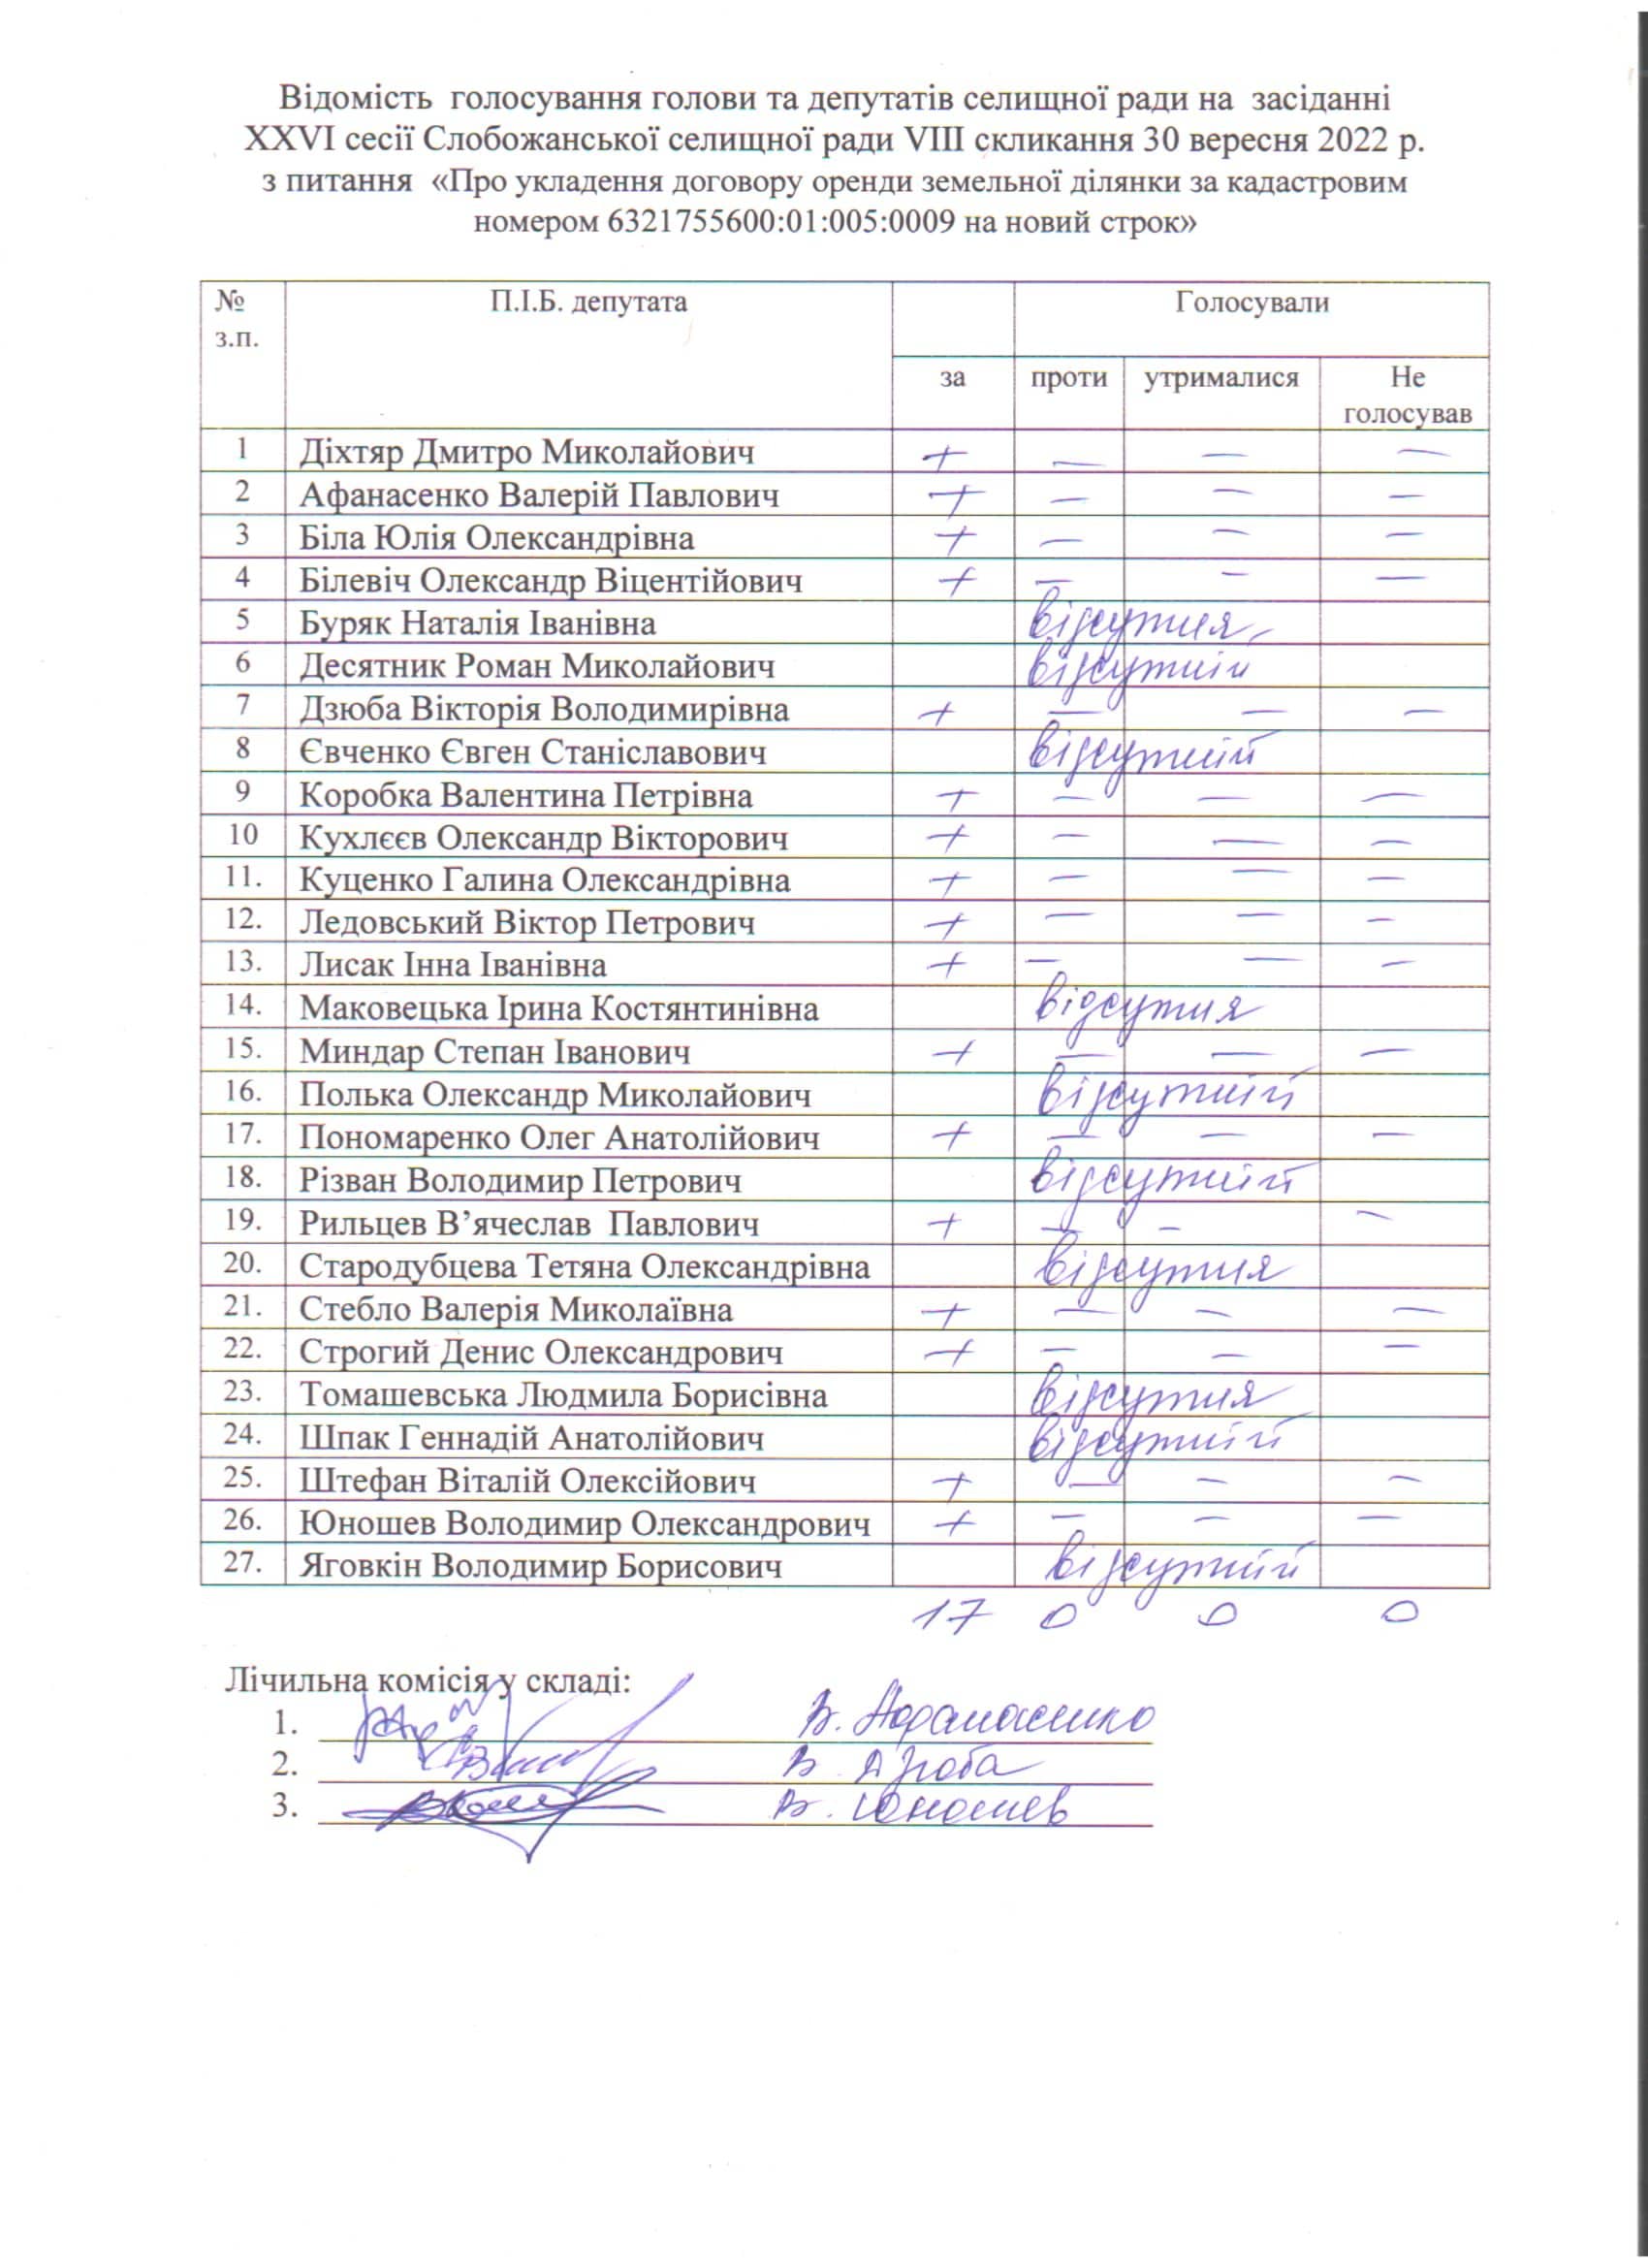 Відомість голосування голови та депутатів селищної ради на засіданні
XXVI сесії Слобожанської селищної ради VIII скликання 30 вересня 2022 р.
з питання «Про укладення договору оренди земельної ділянки за кадастровим
номером 6321755600:01:005:0009 на новий строк»
№ з.п. П.І.Б. депутата Голосували
за проти утрималися Не голосував
1 Діхтяр Дмитро Миколайович + — — —
2 Афанасенко Валерій Павлович + — — —
3 Біла Юлія Олександрівна + — — —
4 Білевіч Олександр Віцентійович + — — —
5 Буряк Наталія Іванівна відсутня
6 Десятник Роман Миколайович відсутній
7 Дзюба Вікторія Володимирівна + — — —
8 Євченко Євген Станіславович відсутній
9 Коробка Валентина Петрівна + — — —
10 Кухлєєв Олександр Вікторович + — — —
11. Куценко Галина Олександрівна + — — —
12. Ледовський Віктор Петрович + — — —
13. Лисак Інна Іванівна + — — —
14. Маковецька Ірина Костянтинівна відсутня
15. Миндар Степан Іванович + — — —
16. Полька Олександр Миколайович відсутній
17. Пономаренко Олег Анатолійович + — — —
18. Різван Володимир Петрович відсутній
19. Рильцев В’ячеслав Павлович + — — —
20. Стародубцева Тетяна Олександрівна відсутня
21. Стебло Валерія Миколаївна + — — —
22. Строгий Денис Олександрович + — — —
23. Томашевська Людмила Борисівна відсутня
24. Шпак Геннадій Анатолійович відсутній
25. Штефан Віталій Олексійович + — — —
26. Юношев Володимир Олександрович + — — —
27. Яговкін Володимир Борисович відсутній
17 0 0 0
Лічильна комісія у складі:
1. В. Афанасенко
2. В. Дзюба
3. В. Юношев